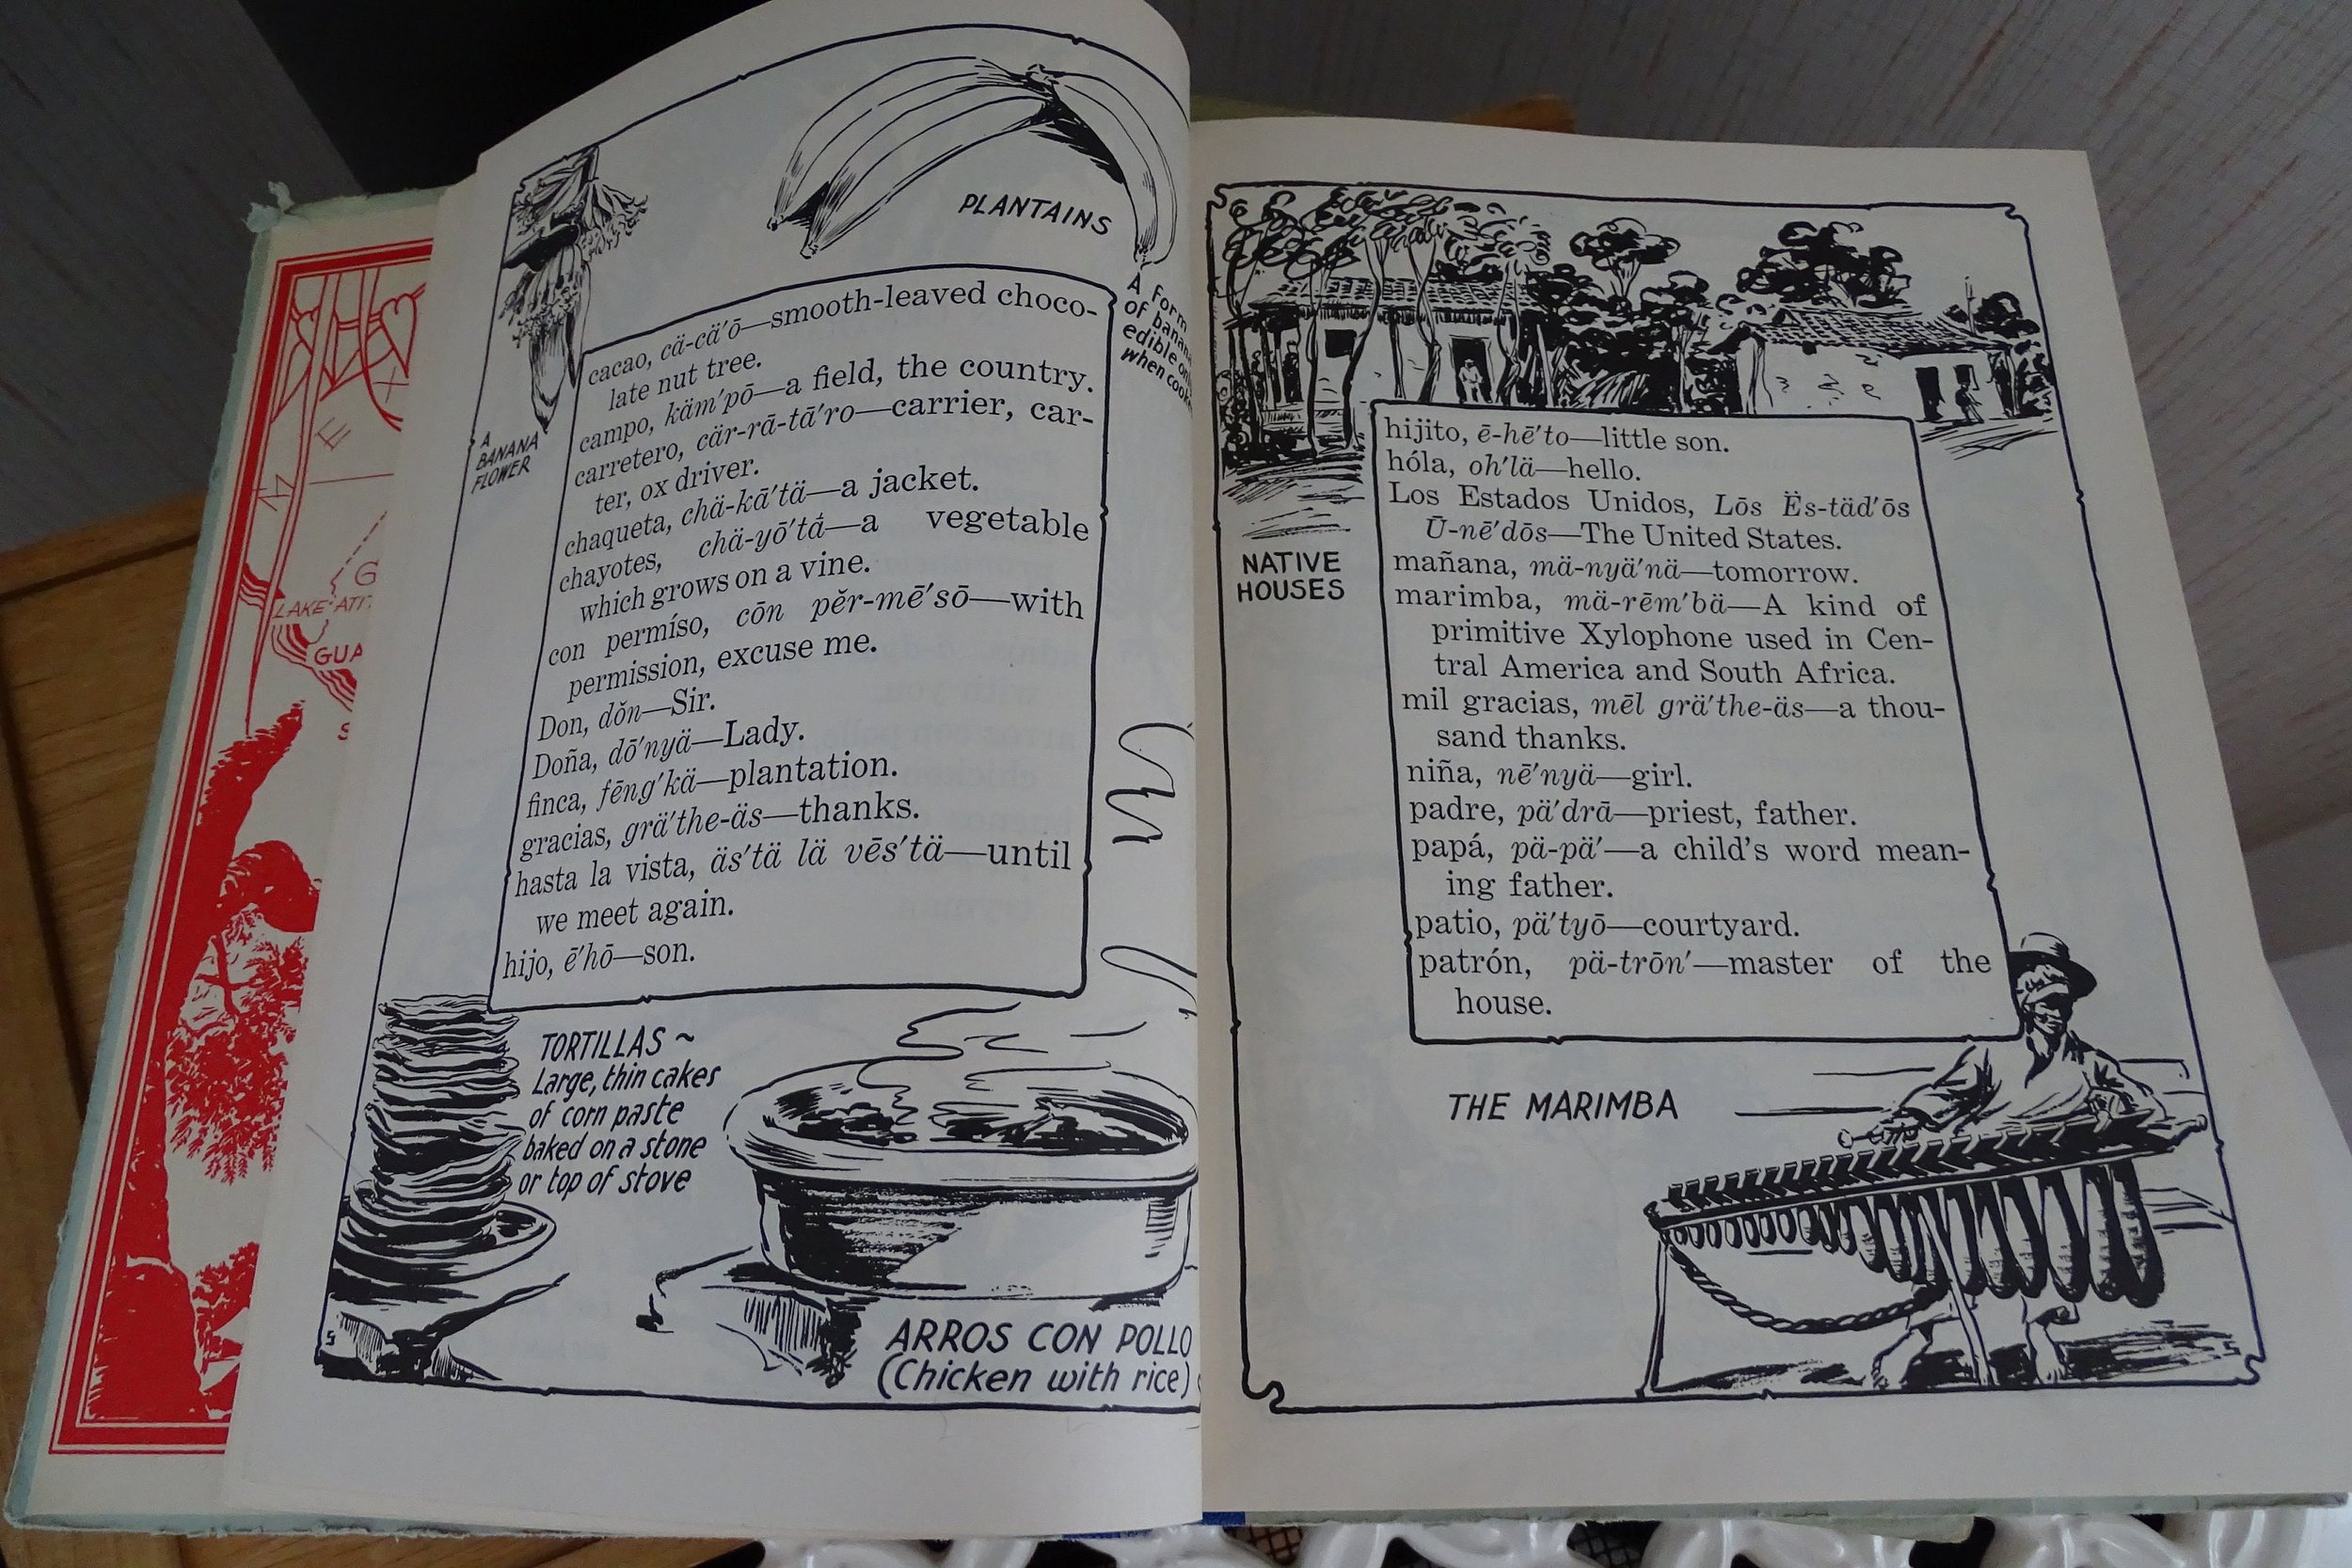 M
E
G
LAKE ATI
GUA
S
PLANTAINS
A Form
of banana
edible only
when cooked
A
BANANA
FLOWER
cacao, cä-cä′ō—smooth-leaved choco-
late nut tree.
campo, käm′pō—a field, the country.
carretero, cär-rā-tā′ro—carrier, car-
ter, ox driver.
chaqueta, chä-kā′tä—a jacket.
chayotes, chä-yō′tā—a vegetable
which grows on a vine.
con permíso, cōn pĕr-mē′sō—with
permission, excuse me.
Don, dŏn—Sir.
Doña, dō′nyä—Lady.
finca, fēng′kä—plantation.
gracias, grä′the-äs—thanks.
hasta la vista, äs′tä lä vēs′tä—until
we meet again.
hijo, ē′hō—son.
TORTILLAS ~
Large, thin cakes
of corn paste
baked on a stone
or top of stove
ARROS CON POLLO
(Chicken with rice)
NATIVE
HOUSES
hijito, ē-hē′to—little son.
hóla, oh′lä—hello.
Los Estados Unidos, Lōs Ĕs-täd′ōs
Ū-nē′dōs—The United States.
mañana, mä-nyä′nä—tomorrow.
marimba, mä-rēm′bä—A kind of
primitive Xylophone used in Cen-
tral America and South Africa.
mil gracias, mēl grä′the-äs—a thou-
sand thanks.
niña, nē′nyä—girl.
padre, pä′drā—priest, father.
papá, pä-pä′—a child's word mean-
ing father.
patio, pä′tyō—courtyard.
patrón, pä-trōn′—master of the
house.
THE MARIMBA